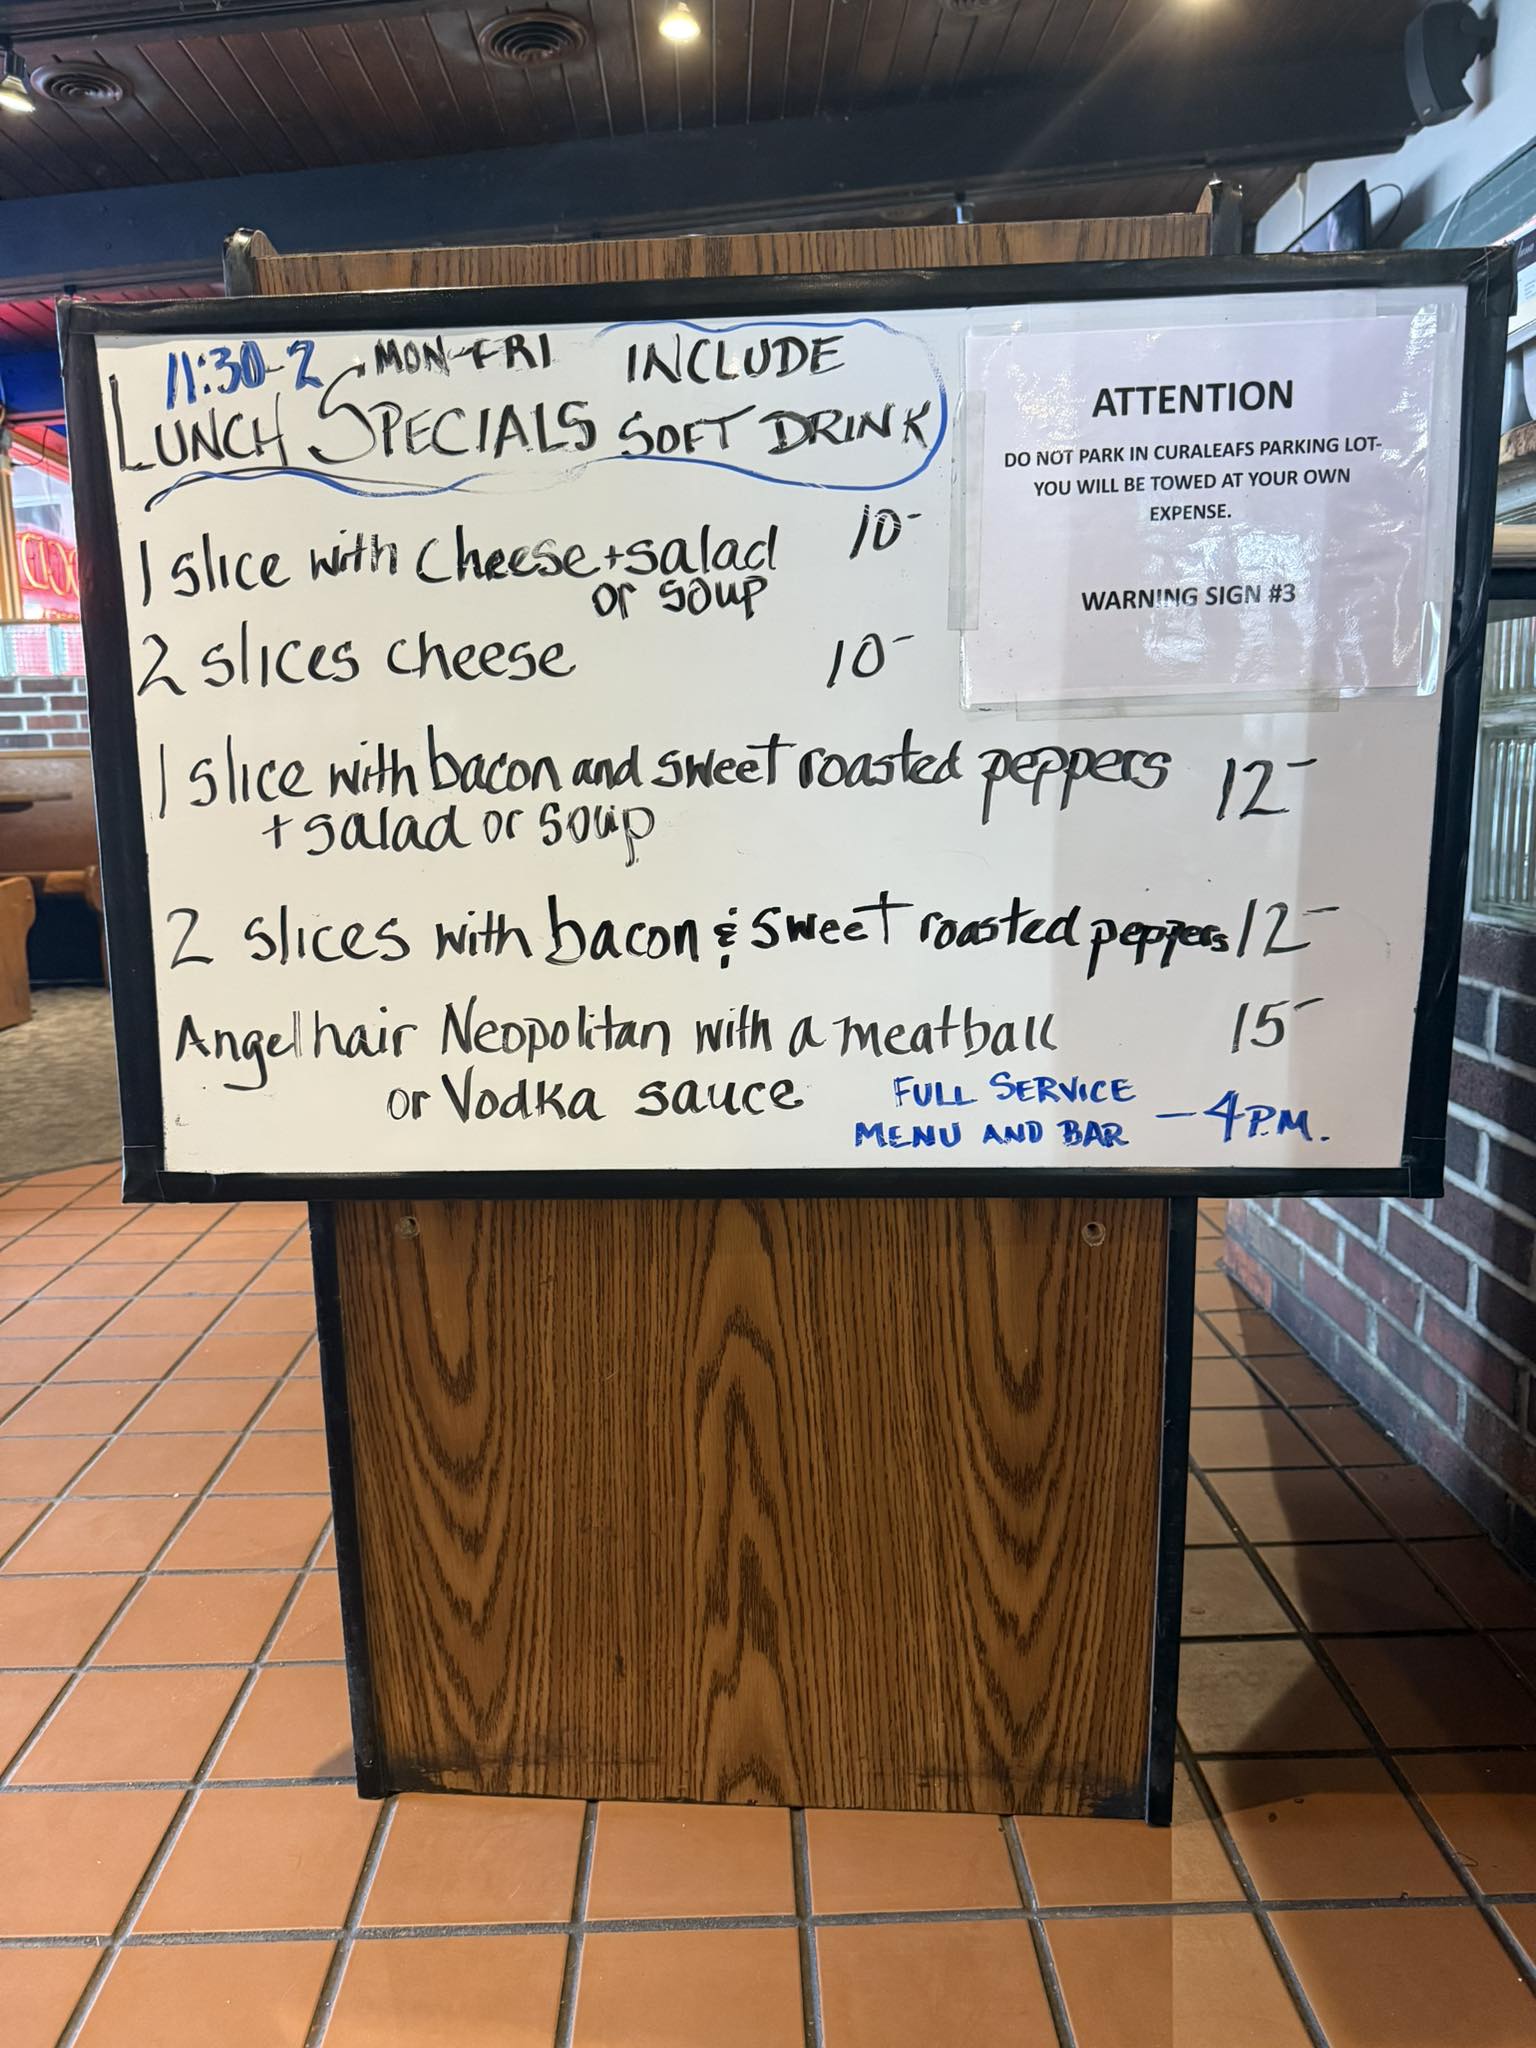 11:30-2 MON-FRI INCLUDE
LUNCH SPECIALS SOFT DRINK
1 slice with cheese + salad 10-
or soup
2 slices cheese 10-
1 slice with bacon and sweet roasted peppers 12-
+ salad or soup
2 slices with bacon & sweet roasted peppers 12-
Angel hair Neopolitan with a meatball 15-
or Vodka sauce
FULL SERVICE
MENU AND BAR - 4 P.M.
ATTENTION
DO NOT PARK IN CURALEAFS PARKING LOT-
YOU WILL BE TOWED AT YOUR OWN
EXPENSE.
WARNING SIGN #3